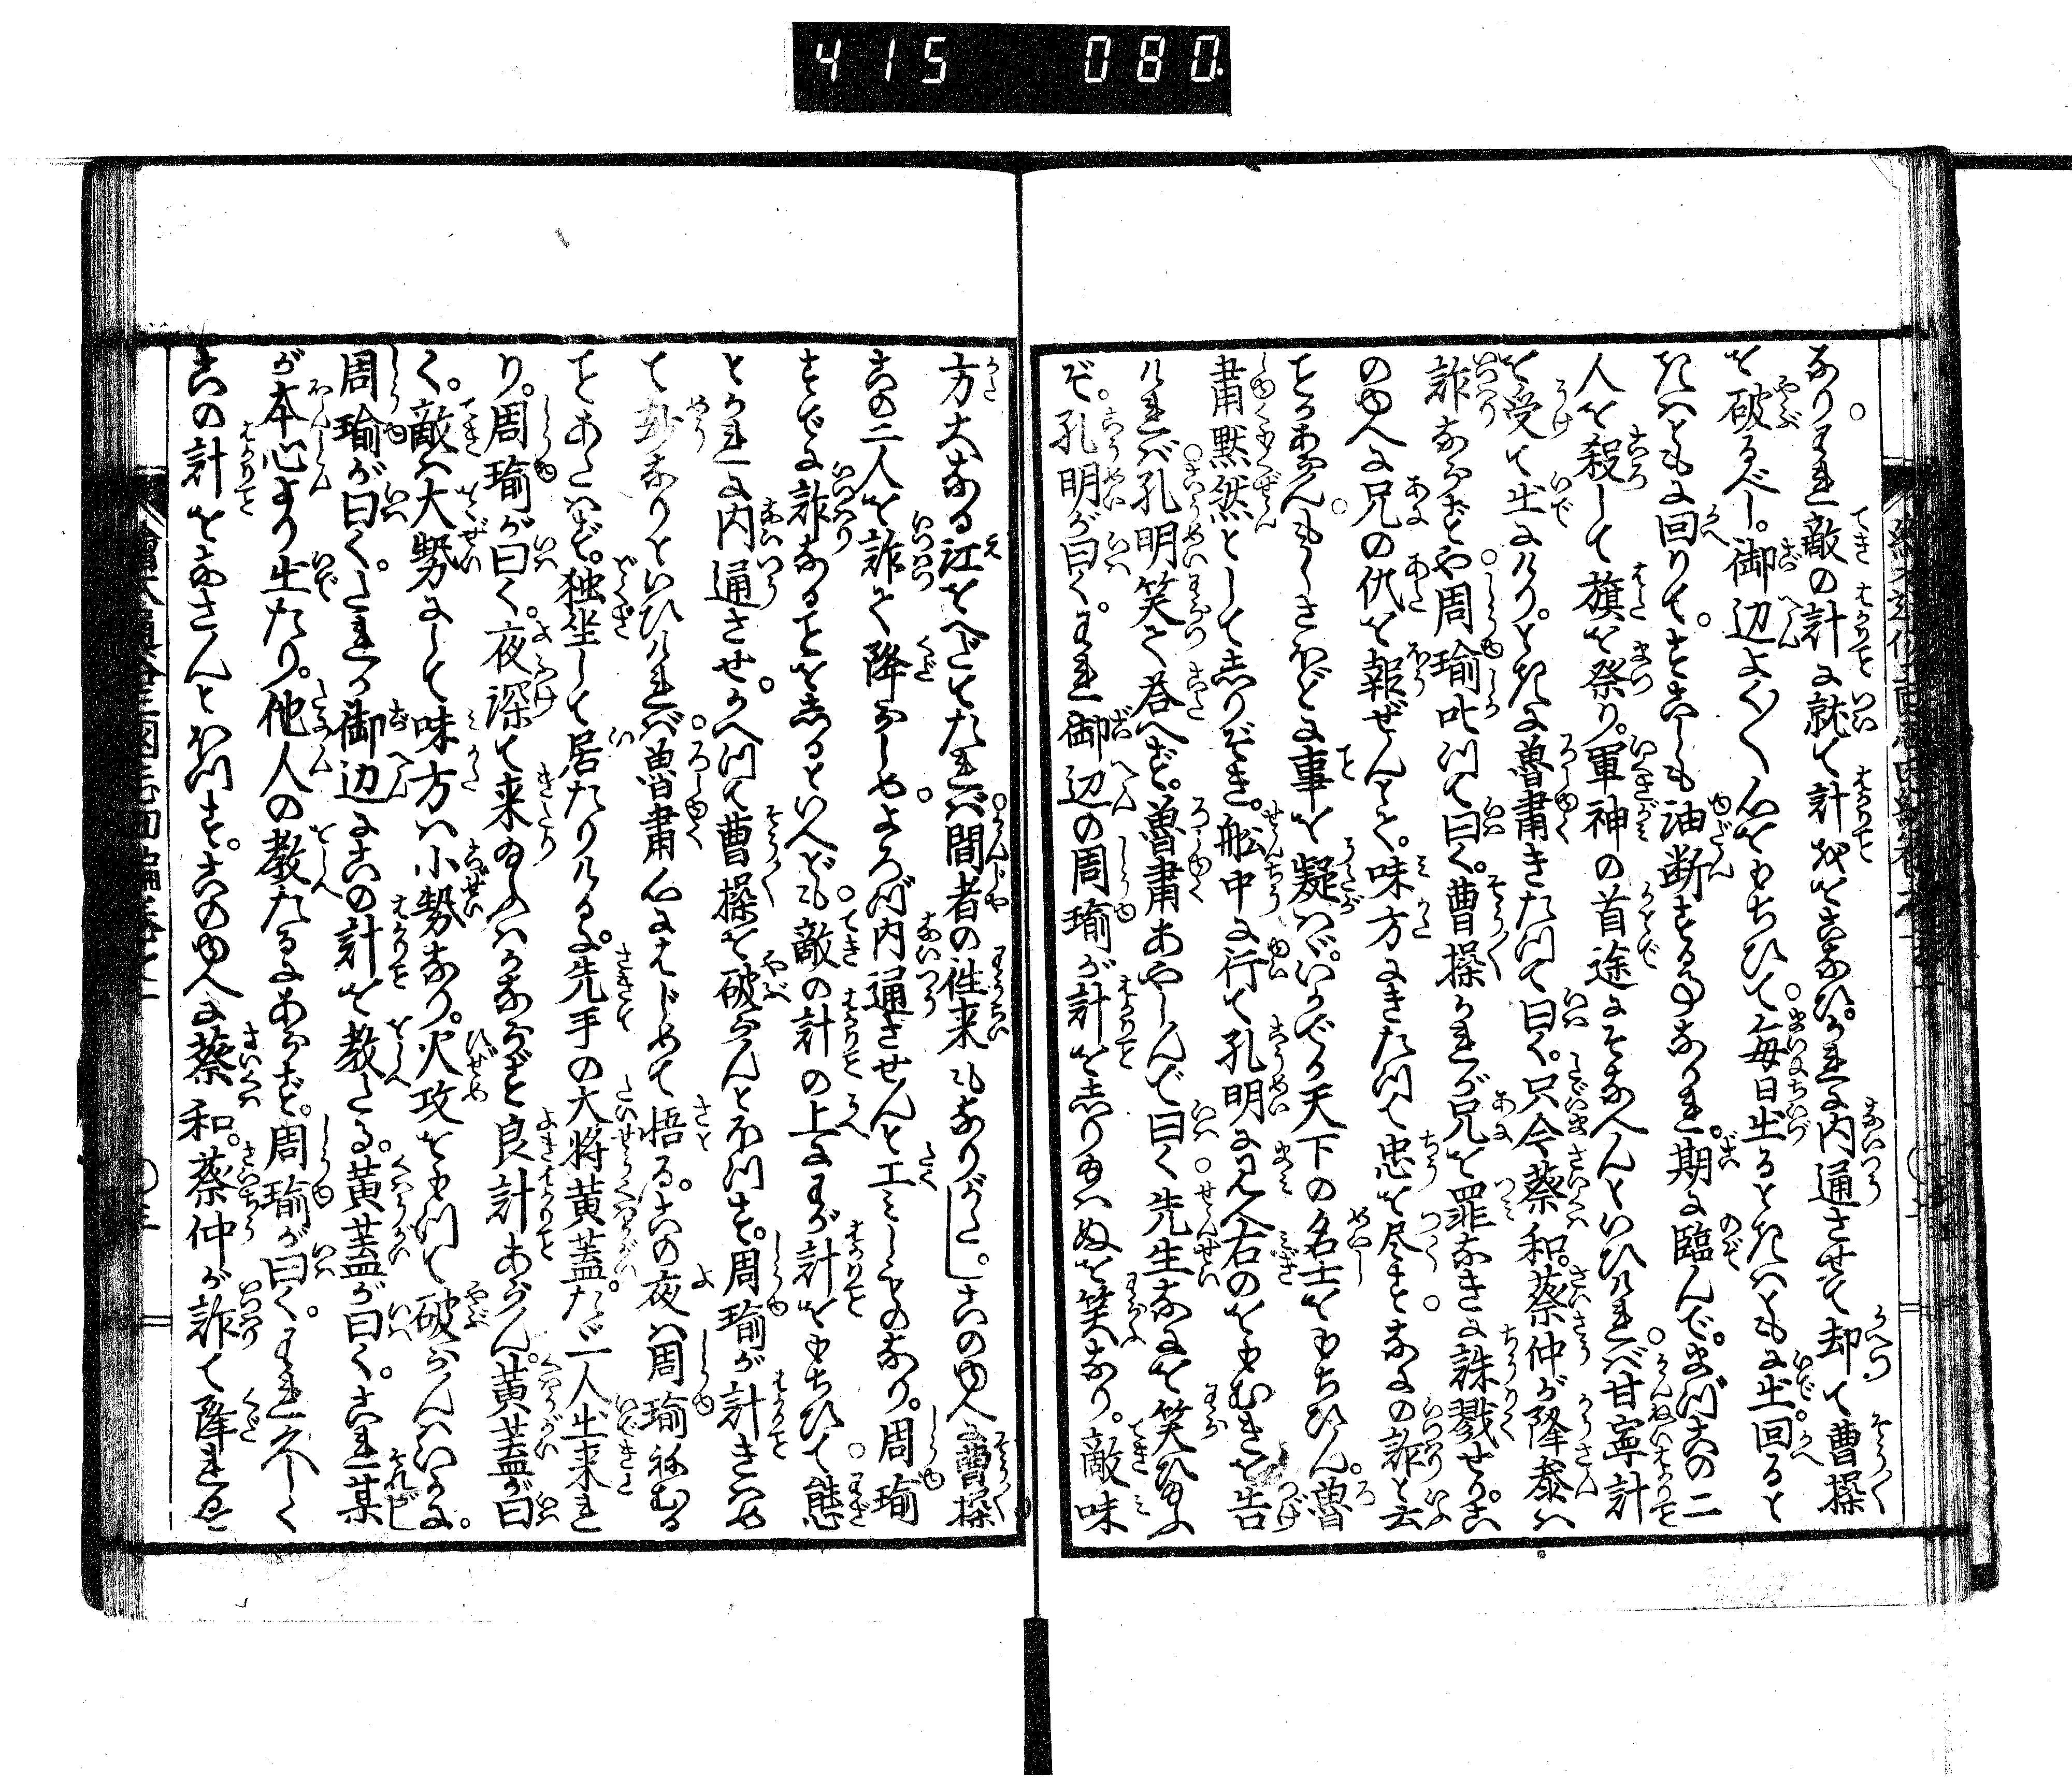 415 080
なりわれ敵の計に就て計をおこなひ。かれに内通させて却て曹操
を破るべし。御辺よく〳〵心をもちひて毎日出るときハともに出。回ると
きハともに回りて。すこしも油断することなかれ。期に臨んで。まづこの二
人を殺して旗を祭り。軍神の首途にそなへんといひければ甘寧計
を受て出にけり。ときに魯粛きたつて曰く。只今蔡和。蔡仲が降参ハ
詐ならずや周瑜叱つて曰く。曹操かれが兄を罪なきに誅戮せり。こ
のゆへに兄の仇を報ぜんとて。味方にきたつて忠を尽すなにの詐と云
ことかあらんもしさほどに事を疑ハヾ。いかでか天下の名士をもちひん。魯
粛黙然としてしりぞき。舩中に行て孔明に見へ右のをもむきを告
ければ孔明笑て荅へず。魯粛あやしんで曰く先生なにを笑ひ給ふ
ぞ。孔明が曰く。われ御辺の周瑜が計をしり給ハぬを笑なり。敵味
方大なる江をへだてたれば間者の往来もなりがたし。このゆへに曹操
この二人を詐て降らしめよろづ内通させんと工ミしものなり。周瑜
すでに詐なることをしるといへども敵の計の上にわが計をもちひて態
とかれに内通させ。かへつて曹操を破らんとほつす。周瑜が計きハめ
て妙なりといひければ魯粛心にはじめて悟る。この夜ハ周瑜ねむる
ことあたハず。独坐して居たりける。に先手の大将黄蓋。たゞ一人出来れ
り。周瑜が曰く。夜深て来給ふハかならず良計あらん。黄蓋が曰
く。敵ハ大勢にして味方ハ小勢なり。火攻をもつて破らんハいかに。
周瑜が曰く。たれか御辺にこの計を教たる。黄蓋が曰く。これ某
が本心より出たり。他人の教たるにあらず。周瑜が曰く。われ久しく
この計をなさんとほつす。このゆへに蔡和。蔡仲が詐て降れるを